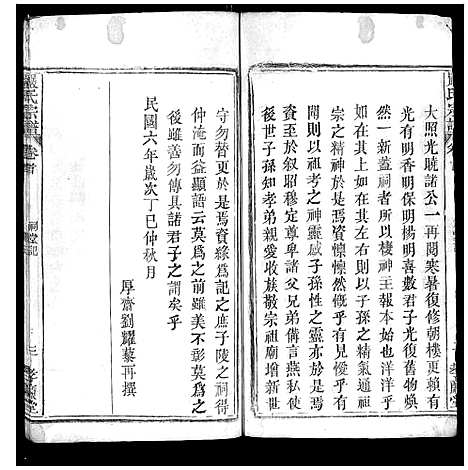 大照光曉諸公一再閱寒暑復修朝樓更賴有
光有明香明保明楊明喜數君子光復舊物煥
然一新蓋祠者所以棲神主報本始也洋洋乎
如在其上如在其左右則其上之精氣通祖
宗之精神於是焉資懍懍然僾乎有見愾乎有
聞是祖考之神靈感子孫性之靈亦萬子孫
於春秋佳節敘昭穆定尊卑諸父兄弟備言燕私使
後世子孫知孝弟親愛收族敬宗祖廟增新世
守勿替更於是焉資緣為記之庶子陵之祠得
仲淹而益顯語云莫為之前雖美不彰莫為之
後雖善勿傳其諸君子之謂矣乎
民國六年歲次丁巳仲秋月
厚齋劉耀藜再撰
嚴氏宗譜
卷首
祠堂記